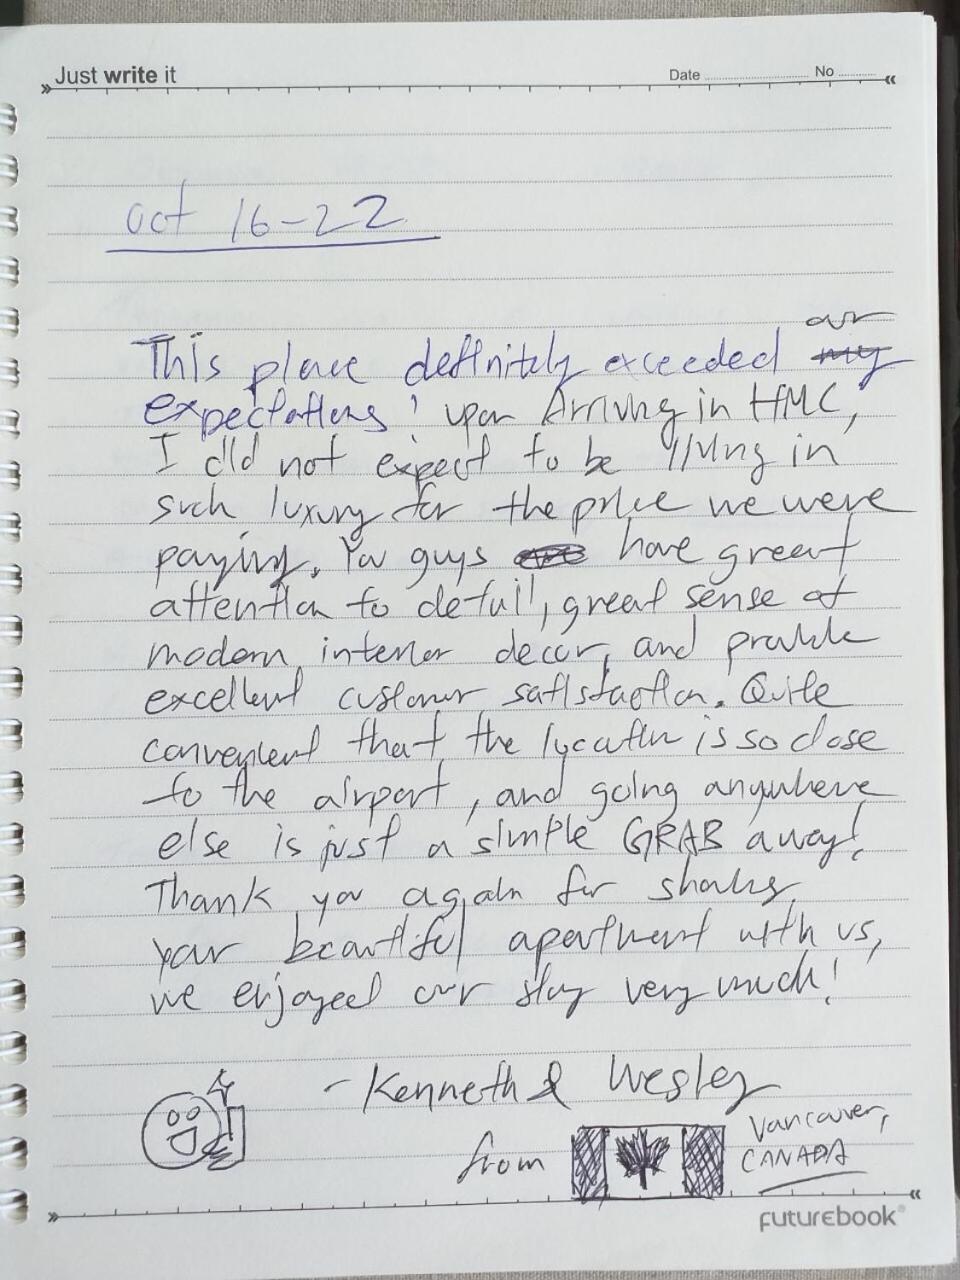 Just write it
Date No
oct 16-22
our
This place definitely exceeded my
expectations! upon Arriving in HMC,
I did not expect to be living in
such luxury for the price we were
paying. You guys have great
attention to detail, great sense of
modern interior decor, and provide
excellent customer satisfaction. Quite
convenient that the location is so close
to the airport, and going anywhere
else is just a simple GRAB away!
Thank you again for sharing
your beautiful apartment with us,
we enjoyed our stay very much!
- Kenneth & Wesley
from Vancouver,
CANADA
futurebook